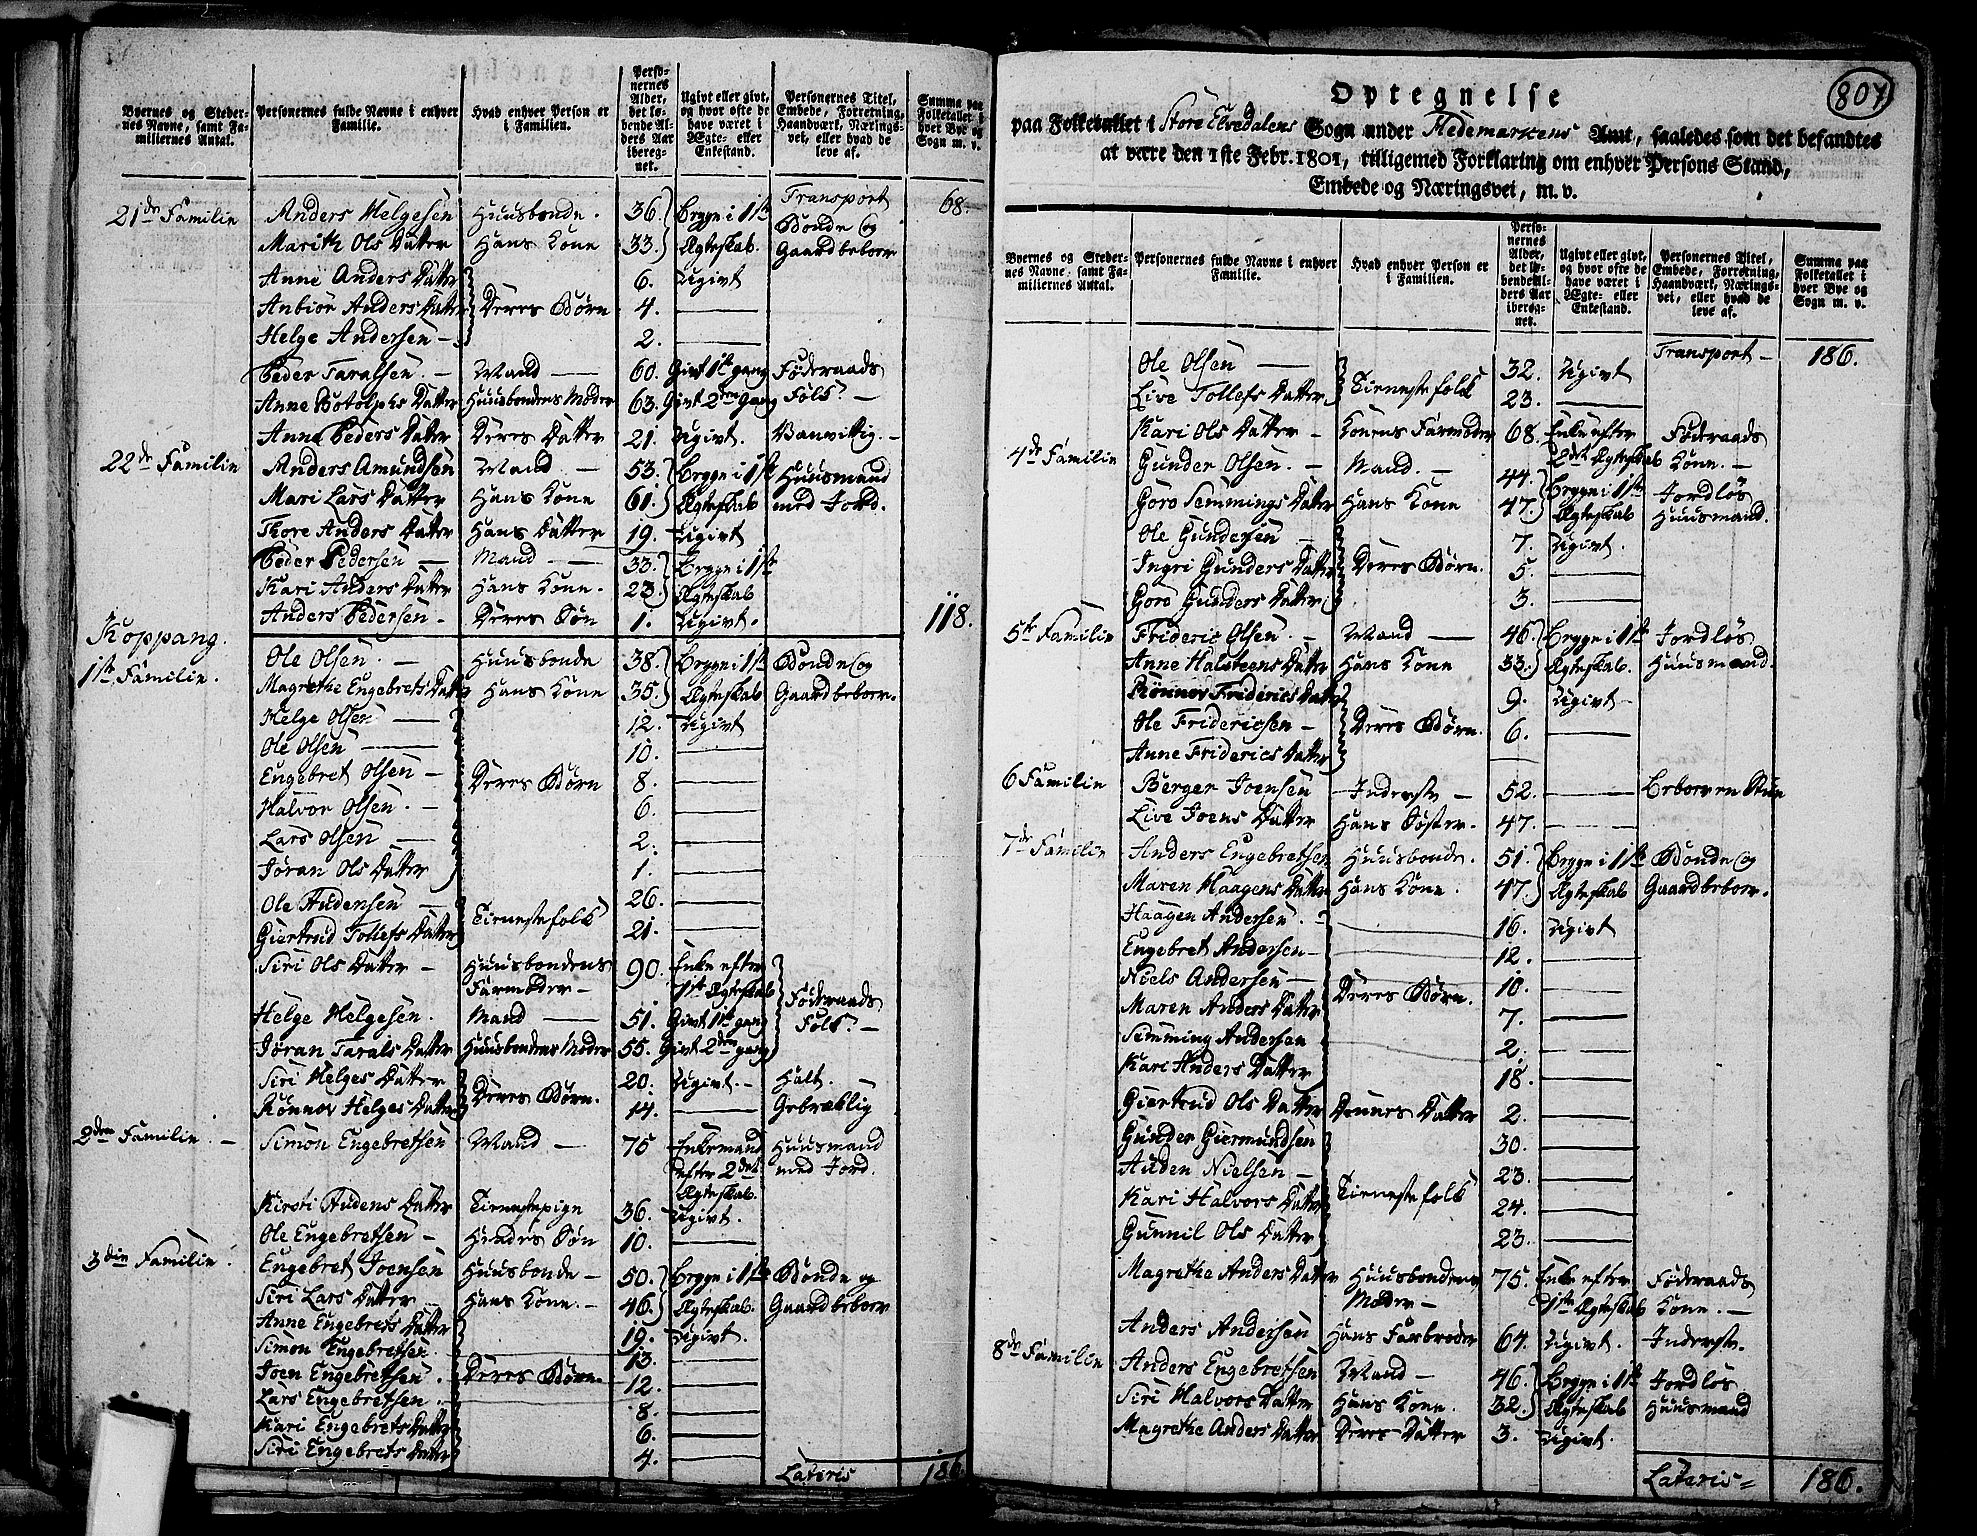 Byernes og Steder-
nes Navne, samt Fa-
miliernes Antal.
Personernes fulde Navne i enhver
Familie.
Hvad enhver Person er
i Familien.
Perso-
nernes
Alder,
det lø-
bende Al-
ders Aar
ibereg-
net.
Ugivt eller givt,
og hvor ofte de
have været i
Ægte- eller
Enkestand.
Personernes Titel,
Embede, Forretning,
Haandværk, Nærings-
vei, eller hvad de
leve af.
Summa paa
Folketallet i
hver Bye og
Sogn m. v.
Transport 68.
21de Familie Anders Helgesen Huusbonde. 36. Begge i 1ste Bonde og
Marith Ols Datter Hans Kone 33. Ægteskab. Gaardbeboer
Anne Anders Datter 6. Ugivt
Anbiør Anders Datter Deres Børn 4. —
Helge Andersen — 2. —
Peder Taralsen. — Mand — 60. Givt 1ste gang Føderaads
Anne Botolphs Datter Huusbondens Moder 63. Givt 2den Gang Folk —
Anne Peders Datter Deres Datter 21. Ugivt. Vanvittig. —
22de Familie Anders Amundsen Mand — 53. Begge i 1ste Huusmand
Mari Lars Datter Hans Kone 61. Ægteskab med Jord.
Thore Anders Datter Hans Datter 19. Ugivt
Peder Pedersen — Mand — 33. Begge i 1ste
Kari Anders Datter Hans Kone. 23. Ægteskab
Anders Pedersen. Deres Søn 1. Ugivt. 118.
Koppang.
1ste Familie. Ole Olsen. — Huusbonde 38. Begge i 1ste Bonde og
Magrethe Engebrets Datter Hans Kone 35. Ægteskab Gaardbeboer.
Helge Olsen — 12. Ugivt
Ole Olsen — 10. —
Engebret Olsen — Deres Børn 8. —
Halvor Olsen. — 6. —
Lars Olsen — 2. —
Jøran Ols Datter 1. —
Ole Audensen — 26. —
Giertrud Tollefs Datter Tienestefolk 21. —
Siri Ols Datter — Huusbondens 90. Enke efter
Farmoder — 1ste Ægteskab Føderaads
Helge Helgesen. Mand — 51. Givt 1ste gang Folk —
Jøran Tarals Datter Huusbondens Moder 55. Givt 2den gang
Siri Helges Datter Deres Børn. 20. Ugivt. — Halt.
Rønnov Helges Datter 14. — Gebræklig
2den Familie. — Simon Engebretsen Mand — 75 Enkemand Huusmand
efter 2det med Jord.
Ægteskab.
Kirsti Audens Datter Tienestepige 36. Ugivt.
Ole Engebretsen — Hendes Søn 10. —
3die Familie. Engebret Joensen Huusbonde — 50. Begge i 1ste Bonde og
Siri Lars Datter Hans Kone. — 46. Ægteskab. Gaardbeboer
Anne Engebrets Datter 19. Ugivt.
Simon Engebretsen. 13. —
Joen Engebretsen. Deres Børn 12. —
Lars Engebretsen. 8. —
Kari Engebrets Datter 6. —
Siri Engebrets Datter 4. —
Lateris 186.
807
Optegnelse
paa Folketallet i Store Elvedalens Sogn under Hedemarkens Amt, saaledes som det befandtes
at være den 1ste Febr. 1801, tilligemed Forklaring om enhver Persons Stand,
Embede og Næringsvei, m. v.
Byernes og Steder-
nes Navne, samt Fa-
miliernes Antal.
Personernes fulde Navne i enhver
Familie.
Hvad enhver Person er
i Familien.
Perso-
nernes
Alder,
det lø-
bende Al-
ders Aar
ibereg-
net.
Ugivt eller givt,
og hvor ofte de
have været i
Ægte- eller
Enkestand.
Personernes Titel,
Embede, Forretning,
Haandværk, Nærings-
vei, eller hvad de
leve af.
Summa paa
Folketallet i
hver Bye og
Sogn m. v.
Transport — 186.
Ole Olsen — 32. Ugivt
Live Tollefs Datter Tienestefolk 23. —
Kari Ols Datter — Konens Farmoder 68. Enke efter Føderaads
2det Ægteskab Kone. —
4de Familie Gunder Olsen. — Mand. — 44. Begge i 1ste Jordløs
Goro Semmings Datter Hans Kone 47. Ægteskab Huusmand.
Ole Gundersen — 7. Ugivt.
Ingri Gunders Datter Deres Børn. 5. —
Goro Gunders Datter 3. —
5te Familie Frideric Olsen. — Mand — 46. Begge i 1ste Jordløs
Anne Halsteens Datter Hans Kone 33. Ægteskab. Huusmand.
Rønnov Friderics Datter 9. Ugivt —
Ole Fridericsen — Deres Børn. 6. —
Anne Friderics Datter —
6 Familie Berger Joensen Inderste — 52. —
Live Joens Datter Hans Søster. 47. —
7de Familie Anders Engebretsen Huusbonde. 51. Begge i 1ste Bonde og
Maren Haagens Datter Hans Kone. 47. Ægteskab Gaardbeboer.
Haagen Andersen. — 16. Ugivt
Engebret Andersen — 12. —
Niels Andersen — Deres Børn. 10. —
Maren Anders Datter 7. —
Semming Andersen 2. —
Kari Anders Datter 18. —
Giertrud Ols Datter Dennes Datter 2. —
Gunder Giermundsen 30. —
Auden Nielsen — Tienestefolk 23. —
Kari Halvors Datter 24. —
Gunnil Ols Datter 23. —
Magrethe Anders Datter Huusbondens 75. Enke efter Føderaads
Moder — 1ste Ægteskab Kone. —
Anders Andersen Hans Farbroder 64. Ugivt. Inderste.
8de Familie Anders Engebretsen Mand — 46. Begge i 1ste Jordløs
Siri Halvors Datter Hans Kone. 32. Ægteskab Huusmand
Magrethe Anders Datter Deres Datter 3. Ugivt.
Lateris = 186.